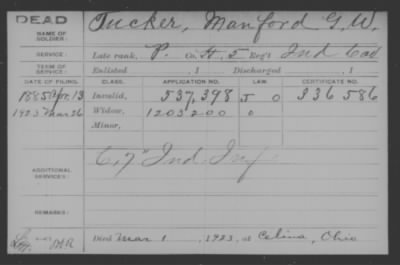 DEAD
NAME OF SOLDIER: Tucker, Manford G. W.
SERVICE: Late rank, P. Co. H, 5 Reg't Ind Cav
TERM OF SERVICE: Enlisted , 1 Discharged , 1
DATE OF FILING. CLASS. APPLICATION NO. LAW CERTIFICATE NO.
1885 Apr. 13 Invalid, 537,398 J O 336 586
1923 Mar 26 Widow, 1203200 O
Minor,
ADDITIONAL SERVICES: C, 7" Ind. Inf
REMARKS:
Died Mar 1, 1923, at Celina, Ohio